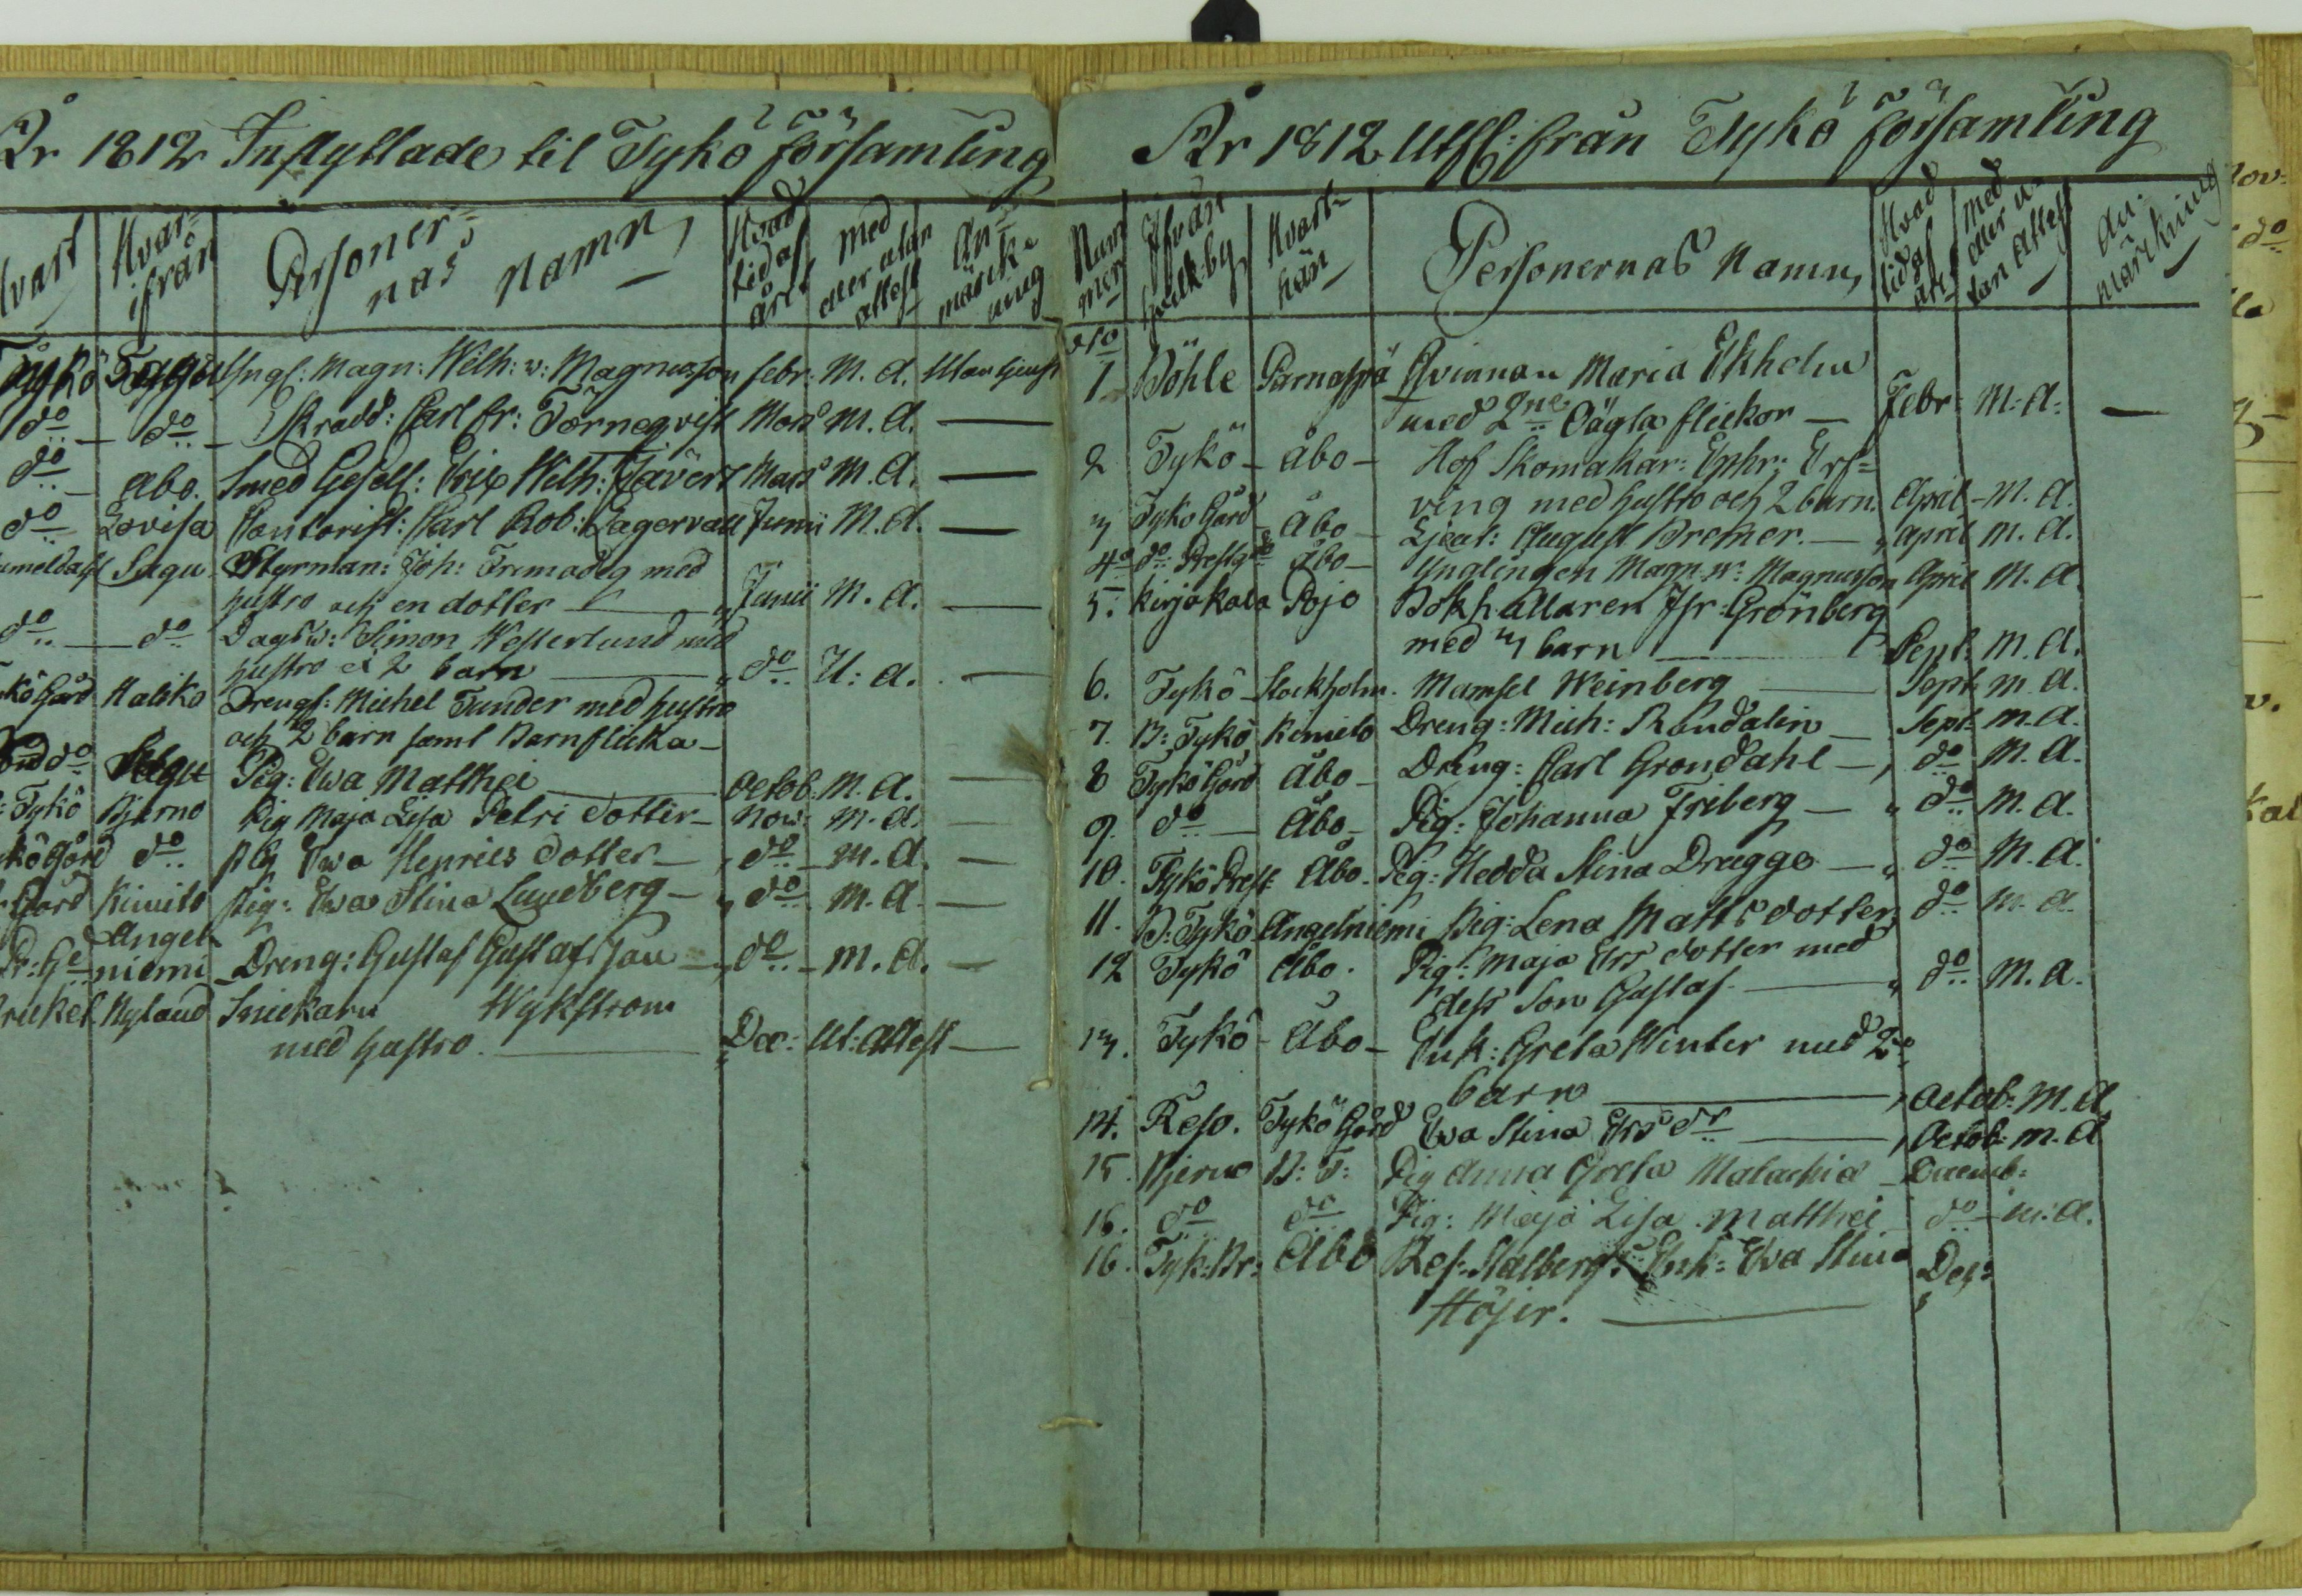 År 1812 Inflyttade til Tykö församling
Hvart Hvarifrån Personernas Namn Hvad tid af året med eller utan attest Anmärkning
Tykö Yngl: Magn: Wilh: v: Magnusson febr: M. A. Utan tjenst
do do Skradd: Carl Er: Törneqvist Mars M. A.
do Åbo. Smed Gesell: Eric Wilh: Mars M. A.
do Lovisa Contorist: Carl Rob: Lagervall Junii M. A.
Sagu Styrman: Joh: med
hustro och en dotter Junii M. A.
do do Dagsv: Simon Westerlund med
hustro et 2 barn do U: A.
Gård Haliko Drengs: Michel Tunder med hustro
och 2 barn samt Barnflicka
do Pig: Ewa Matthei Octob: M. A.
Tykö Bjerno Pig Maja Lisa Petri dotter Nov: M. A.
Gård do Pig Ewa Henrics dotter do M. A.
Gård Kimito Pig: Ewa Stina Lundberg do M. A.
Angel
niemi Dreng: Gustaf Gustafsson do M. A.
Nyland Snickarn Wykstrom
med hustro Dec: Ut: Attest
År 1812 Utfl: från Tykö församling
Nummer Ifrån hvilk. by Hvarthän Personernas Namn, Hvad tid af året Med eller utan Attest Anmärkning
No
1 Böhle Qvinnan Maria Ekholm
med 2ne Oägta flickor Febr: M: A:
2 Tykö Åbo Hof Skomakar: Ephr: Erf=
ving med hustro och 2 barn. April M. A.
3 Tykö Gård Åbo August Bremer. April M. A.
4 do Prestg. Åbo Ynglingen Magn. v: Magnusson April M. A.
5. Kirjakala Pojo Bokhållaren Isr: Grönberg
med 3 barn Sept. M. A.
6. Tykö Stockholm. Mamsel Weinberg Sept. M. A.
7. B: Tykö Kimito Dreng: Mich: Randalin Sept. M. A.
8 Tykö Gård Åbo Dreng: Carl Grondahl do M. A.
9. do Åbo Pig: Johanna Friberg do M. A.
10. Tykö Prest: Åbo. Pig: Hedda Stina Dragge do M. A.
11. B: Tykö Angelniemi Pig: Lena Matts dotter do M. A.
12 Tykö Åbo. Pig: Maja Ers dotter med
dess Son Gustaf do M. A.
13. Tykö Åbo Enk: Greta Winter med 2ne
barn Octob: M. A.
14. Reso. Tykö Gård Ewa Stina Ers dr Octob: M. A
15. Bjerno B: T: Pig Anna Greta Malachia Decemb:
16. do do Pig: Maja Lisa Matthei do M. A.
16. Tyk: Br: Åbo Ref. Stalbergs Enk: Ewa Stina Des:
Höjer.